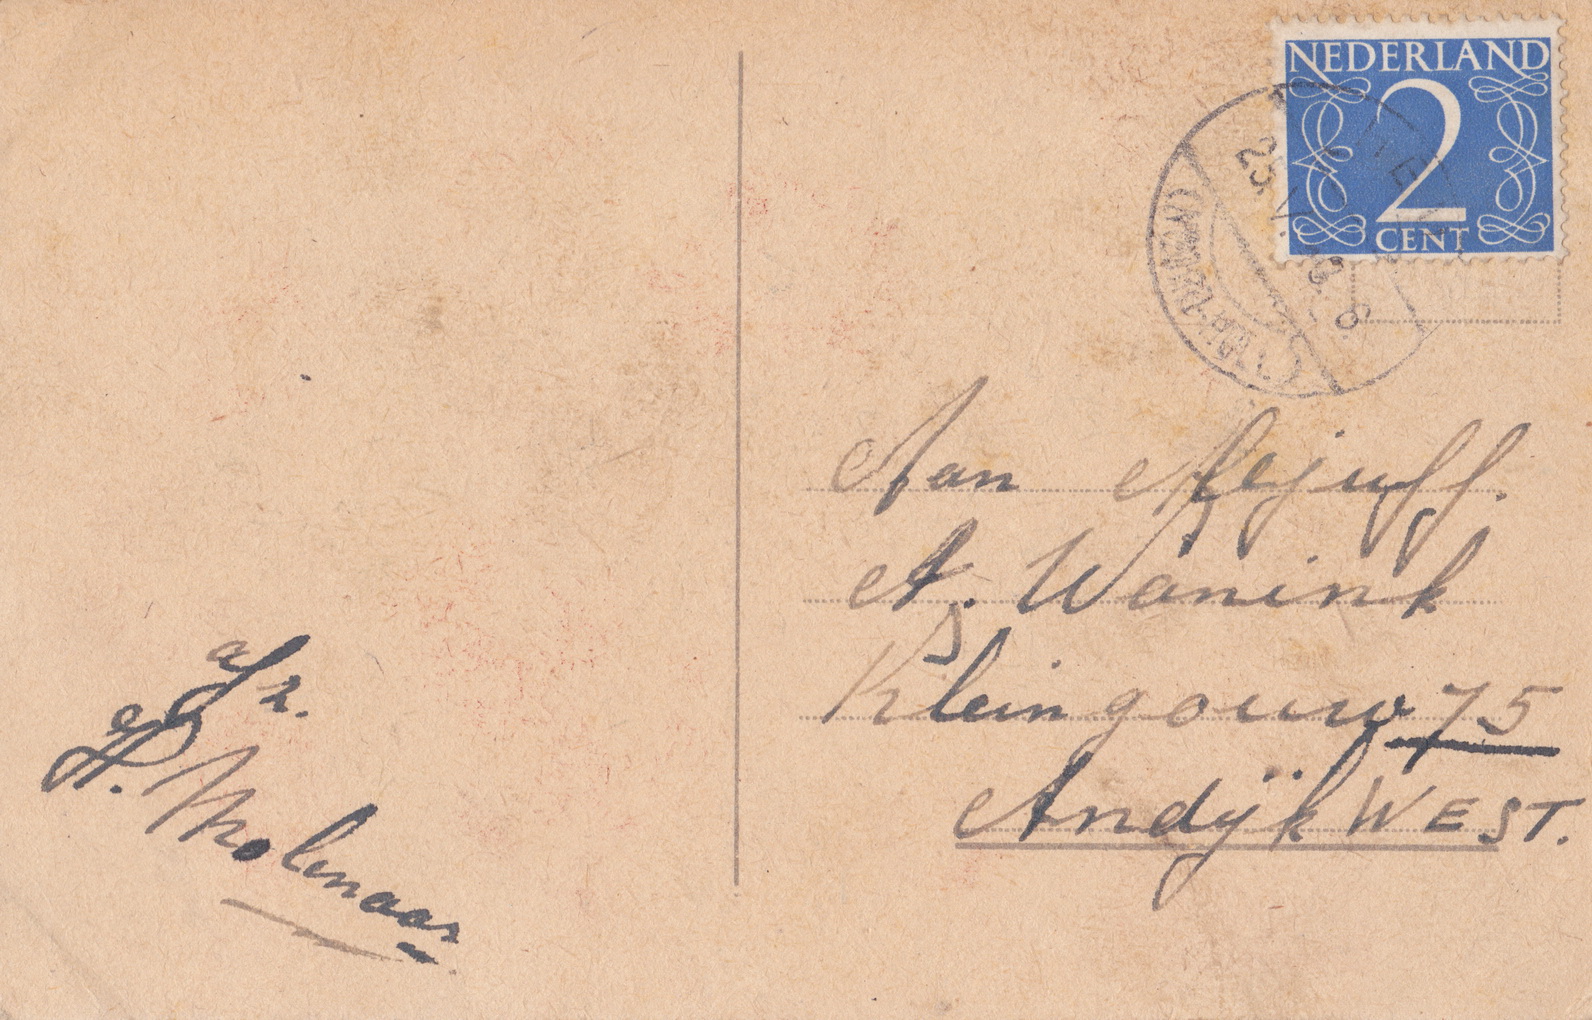 NEDERLAND
2
CENT
25.VI.
Aan Mejuff.
A. Wanink
Kleingouw 75
Andijk WEST.
afz.
P. Molenaar